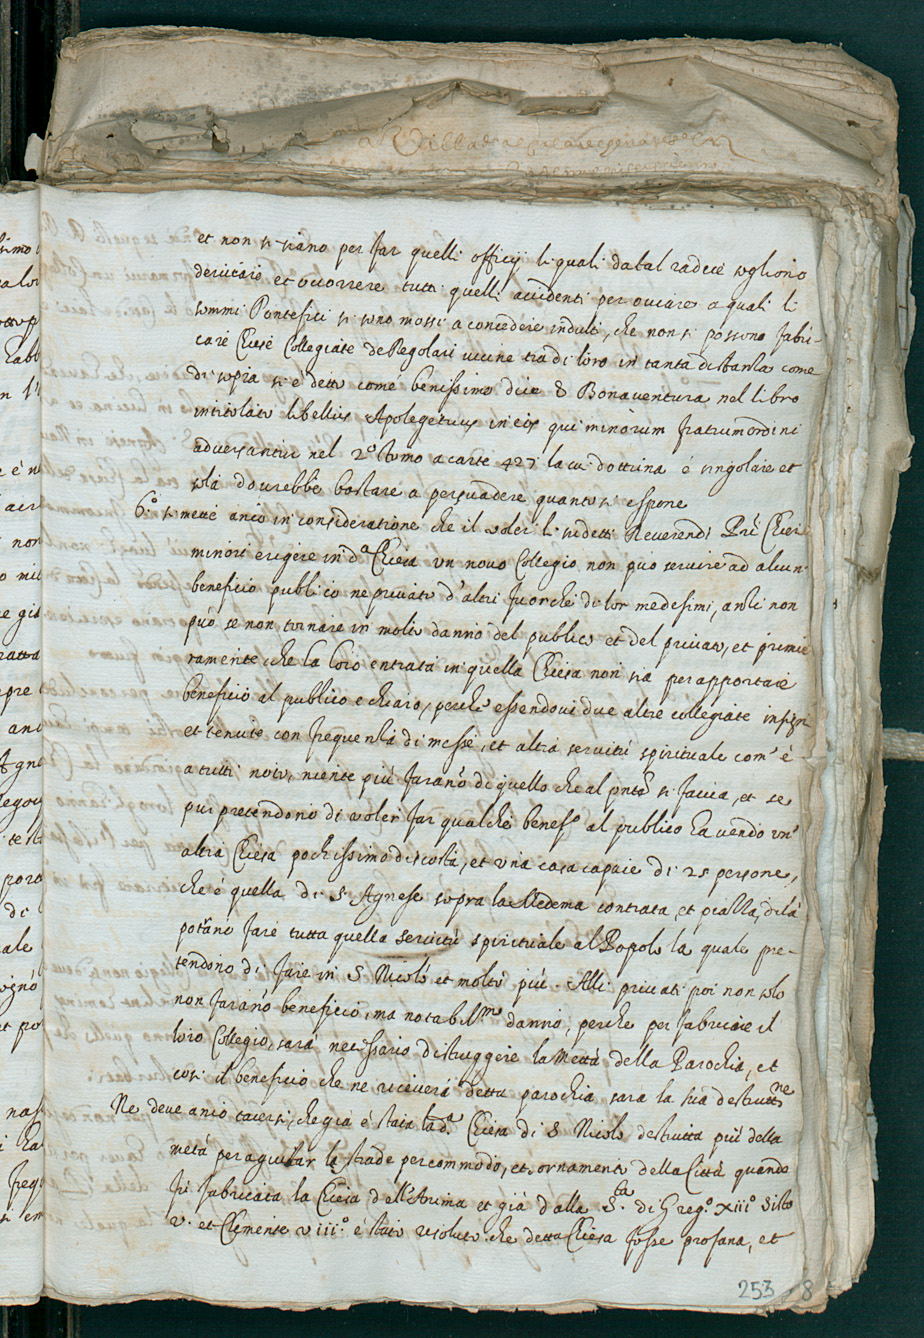 et non si siano per far quelli officij li quali da tal radece sogliono
derivare et occorrere tutti quelli accidenti per oviare a quali li
sommi Pontefici si sono mossi a concedere indulti, che non si possono fabri-
care Chiese Collegiate de Regolari vicine tra di loro in tanta distanza come
di sopra si è detto come benissimo dice S Bonaventura nel libro
intitolato libellus Apologeticus in eis qui minorum fratrum ordini
adversantur nel 2º tomo a carte 427 la cui dottrina è singolare et
sola dovrebbe bastare a persuadere quanto si espone
6º si mette anco in consideratione che il voler li sudetti Reverendi Pri Chieri
minori erigere in da Chiesa un novo Collegio non può servire ad alcun
beneficio publico ne privato d'altri fuorche di lor medesimi, anzi non
può se non tornare in molto danno del publico et del privato, et primie
ramente che la loro entrata in quella Chiesa non sia per apportare
beneficio al publico e chiaro, perche essendovi due altre collegiate insign
et tenute con frequenza di messe, et altra servitù spirituale com' è
a tutti noto, niente più farano di quello che al pnte si faccia, et se
pur pretendono di voler far qualche benefº al publico havendo un'
altra Chiesa pochissimo discosta, et una casa capace di 25 persone,
che è quella di S Agnese sopra la Medema contrata et piazza, di là
potrano fare tutta quella servitù spirituale al Popolo la quale pre-
tendono di fare in S Nicolò et molto più. Alli privati poi non solo
non farano beneficio, ma notabilmo danno, perche per fabricare il
loro Collegio, sarà necessario distruggere la metta della Parochia, et
cosi il beneficio che ne riceverà detta parochia, sarà la sua destruttne
Ne deve anco tacersi, che già è stata la da Chiesa di S Nicolò destrutta più della
metà per agiustar la strade per commodo, et ornamento della Città quando
fu fabricata la Chiesa dell'Anima et già dalla Sta di Gregº XIIIº Sisto
V. et Clemente VIIIº è stato resoluto che detta Chiesa fosse profana, et
253 8